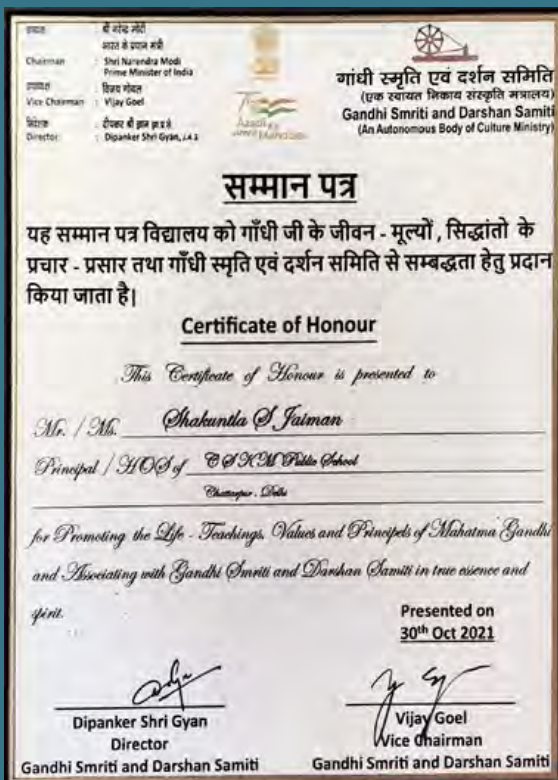 अध्यक्ष : श्री नरेन्द्र मोदी
भारत के प्रधान मंत्री
Chairman : Shri Narendra Modi
Prime Minister of India
उपाध्यक्ष : विजय गोयल
Vice Chairman : Vijay Goel
निदेशक : दीपंकर श्री ज्ञान
Director : Dipanker Shri Gyan, I.A.S
Azadi Ka
Amrit Mahotsav
गांधी स्मृति एवं दर्शन समिति
(एक स्वायत निकाय संस्कृति मंत्रालय)
Gandhi Smriti and Darshan Samiti
(An Autonomous Body of Culture Ministry)
सम्मान पत्र
यह सम्मान पत्र विद्यालय को गाँधी जी के जीवन - मूल्यों , सिद्धांतो के
प्रचार - प्रसार तथा गाँधी स्मृति एवं दर्शन समिति से सम्बद्धता हेतु प्रदान
किया जाता है|
Certificate of Honour
This Certificate of Honour is presented to
Mr. / Ms. Shakuntla S Jaiman
Principal / HOS of C S K M Public School
Chattarpur , Delhi
for Promoting the Life - Teachings, Values and Principels of Mahatma Gandhi
and Associating with Gandhi Smriti and Darshan Samiti in true essence and
spirit.
Presented on
30th Oct 2021
Dipanker Shri Gyan
Director
Gandhi Smriti and Darshan Samiti
Vijay Goel
Vice Chairman
Gandhi Smriti and Darshan Samiti